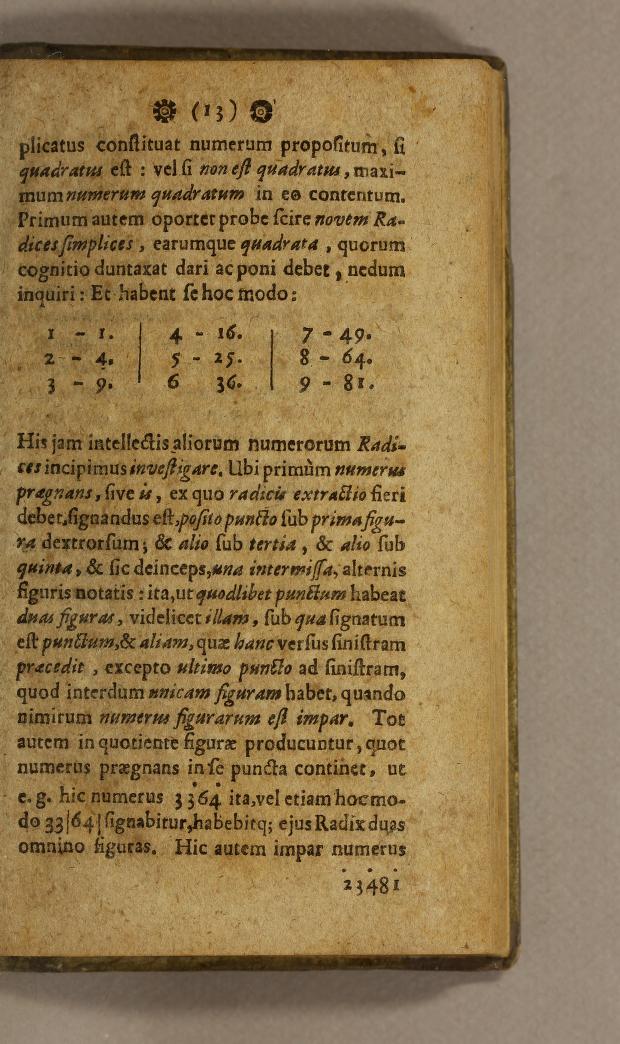 (13)
plicatus conſtituat numerum propoſitum, ſi
quadratus eſt : vel ſi non eſt quadratus, maxi-
mum numerum quadratum in eo contentum.
Primum autem oportet probe ſcire novem Ra-
dices ſimplices, earumque quadrata, quorum
cognitio duntaxat dari ac poni debet, nedum
inquiri: Et habent ſe hoc modo:
1 - 1. | 4 - 16. | 7 - 49.
2 - 4. | 5 - 25. | 8 - 64.
3 - 9. | 6 36. | 9 - 81.
His jam intellectis aliorum numerorum Radi-
ces incipimus inveſtigare. Ubi primùm numerus
prægnans, ſive is, ex quo radicis extractio fieri
debet, ſignandus eſt, poſito puncto ſub prima figu-
ra dextrorſum; & alio ſub tertia, & alio ſub
quinta, & ſic deinceps, una intermiſſa, alternis
figuris notatis : ita, ut quodlibet punctum habeat
duas figuras, videlicet illam, ſub qua ſignatum
eſt punctum, & aliam, quæ hanc verſus ſiniſtram
præcedit, excepto ultimo puncto ad ſiniſtram,
quod interdum unicam figuram habet, quando
nimirum numerus figurarum eſt impar. Tot
autem in quotiente figuræ producuntur, quot
numerus prægnans in ſe puncta continet, ut
e. g. hic numerus 33̇64̇ ita, vel etiam hoc mo-
do 33|64| ſignabitur, habebitq; ejus Radix duas
omnino figuras. Hic autem impar numerus
2̇34̇81̇